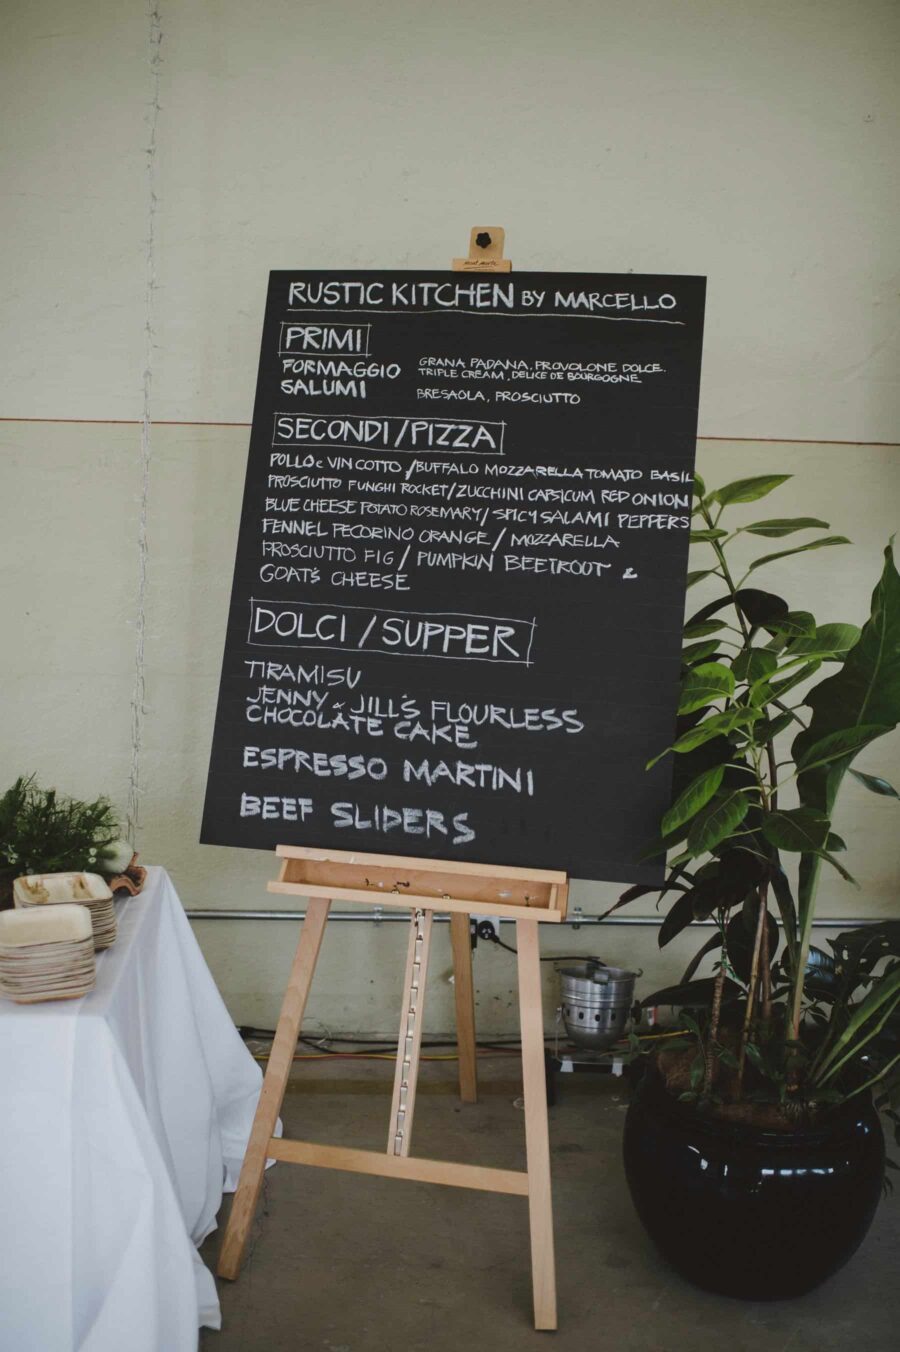 RUSTIC KITCHEN BY MARCELLO
PRIMI
FORMAGGIO GRANA PADANA, PROVOLONE DOLCE.
TRIPLE CREAM, DELICE DE BOURGOGNE
SALUMI BRESAOLA, PROSCIUTTO
SECONDI/PIZZA
POLLO e VIN COTTO /BUFFALO MOZZARELLA TOMATO BASIL
PROSCIUTTO FUNGHI ROCKET/ZUCCHINI CAPSICUM RED ONION
BLUE CHEESE POTATO ROSEMARY/ SPICY SALAMI PEPPERS
FENNEL PECORINO ORANGE / MOZZARELLA
PROSCIUTTO FIG / PUMPKIN BEETROOT &
GOAT'S CHEESE
DOLCI /SUPPER
TIRAMISU
JENNY & JILL'S FLOURLESS
CHOCOLATE CAKE
ESPRESSO MARTINI
BEEF SLIDERS